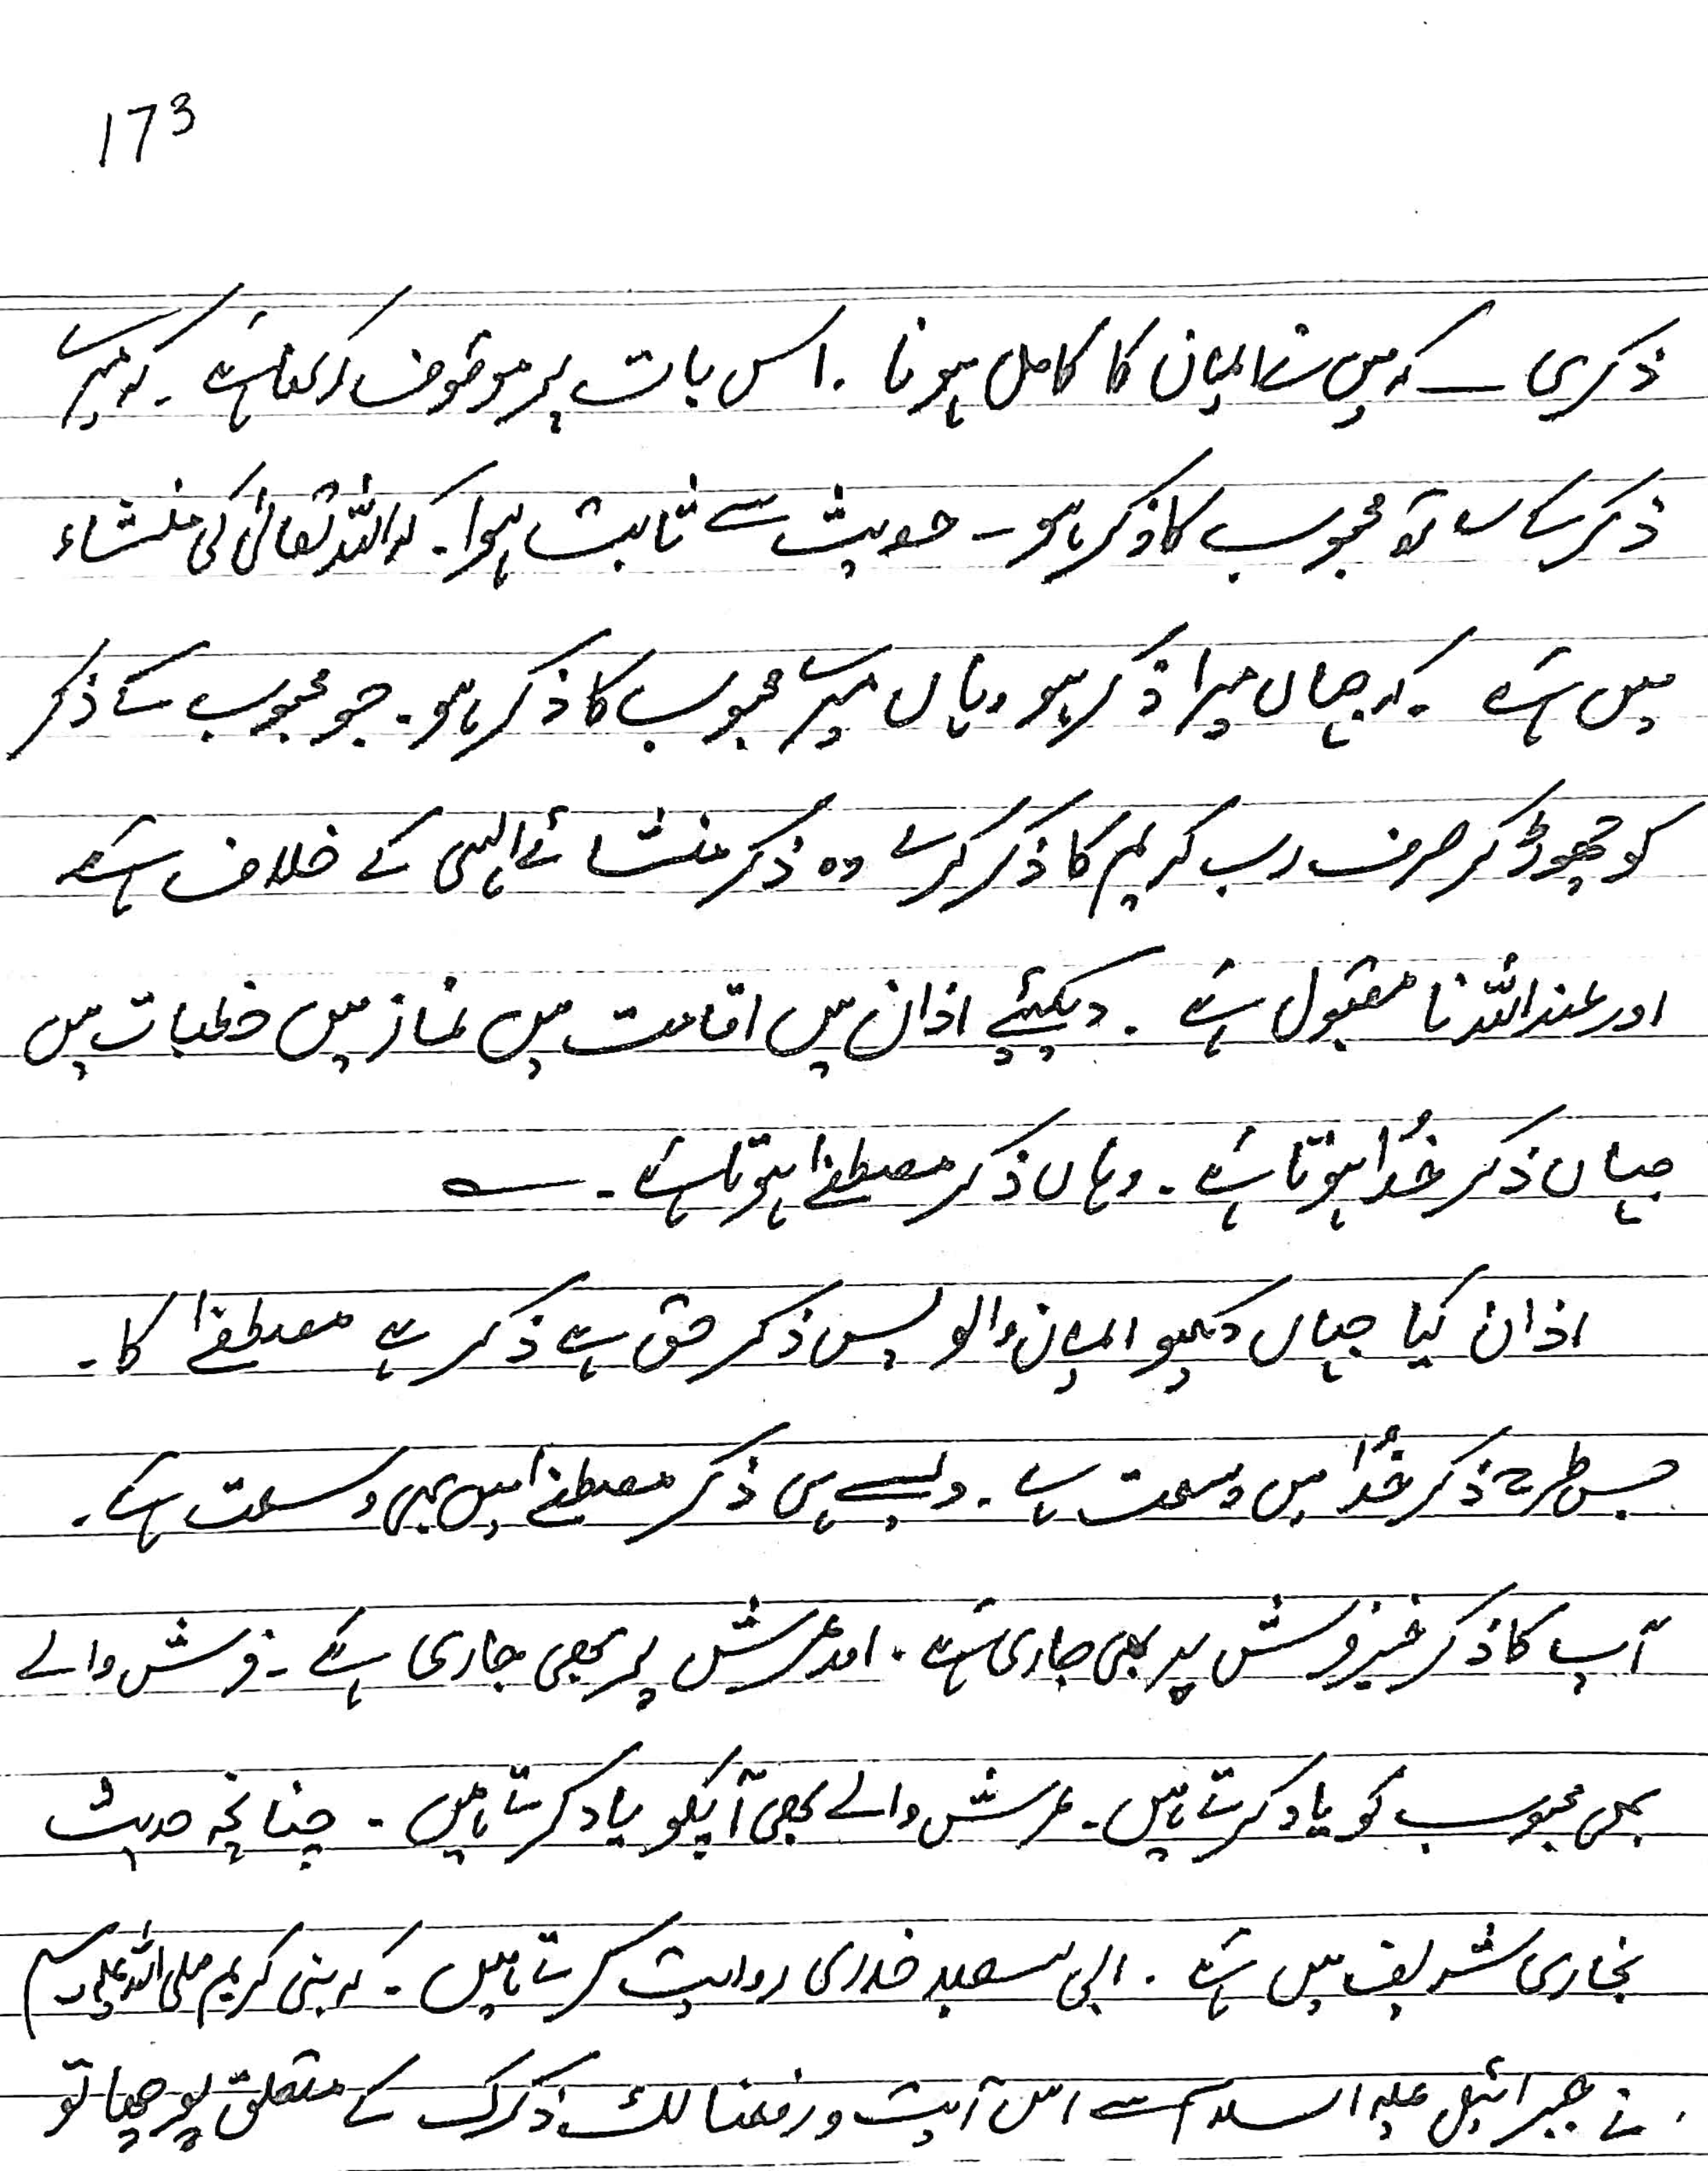 173
ذکری ـ کہ میں نے ایمان کا کامل ہونا ۔ اس بات پر موقوف رکھا ہے ۔ کہ میرے
ذکر کے ساتھ محبوب کا ذکر ہو ۔ حدیث سے ثابت ہوا ۔ کہ اللہ تعالیٰ کی منشاء
میں ہے ۔ کہ جہاں میرا ذکر ہو وہاں میرے محبوب کا ذکر ہو ۔ جو محبوب کے ذکر
کو چھوڑ کر صرف رب کریم کا ذکر کرے وہ ذکر منشائے الہی کے خلاف ہے
اور عند اللہ نا مقبول ہے ۔ دیکھئیے اذان میں اقامت میں نماز میں خطبات میں
جہاں ذکر خُدا ہوتا ہے ۔ وہاں ذکر مصطفےٰ ہوتا ہے ۔
اذان کیا جہاں دیکھو ایمان والو پس ذکر حق ہے ذکر ہے مصطفےٰ کا ۔
جس طرح ذکر خُدا میں وسعت ہے ۔ ویسے ہی ذکر مصطفےٰ میں بھی وسعت ہے ۔
آپ کا ذکر خیر فرش پر بھی جاری ہے ۔ اور عرش پر بھی جاری ہے ۔ فرش والے
بھی محبوب کو یاد کرتے ہیں ۔ عرش والے بھی آپکو یاد کرتے ہیں ۔ چنانچہ حدیث
بخاری شریف میں ہے ۔ ابی سعید خدری روایت کرتے ہیں ۔ کہ نبی کریم صلی اللہ علیہ وسلم
نے جبرائیل علیہ السلام سے اس آیت ورفعنا لک ذکرک کے متعلق پوچھا تو